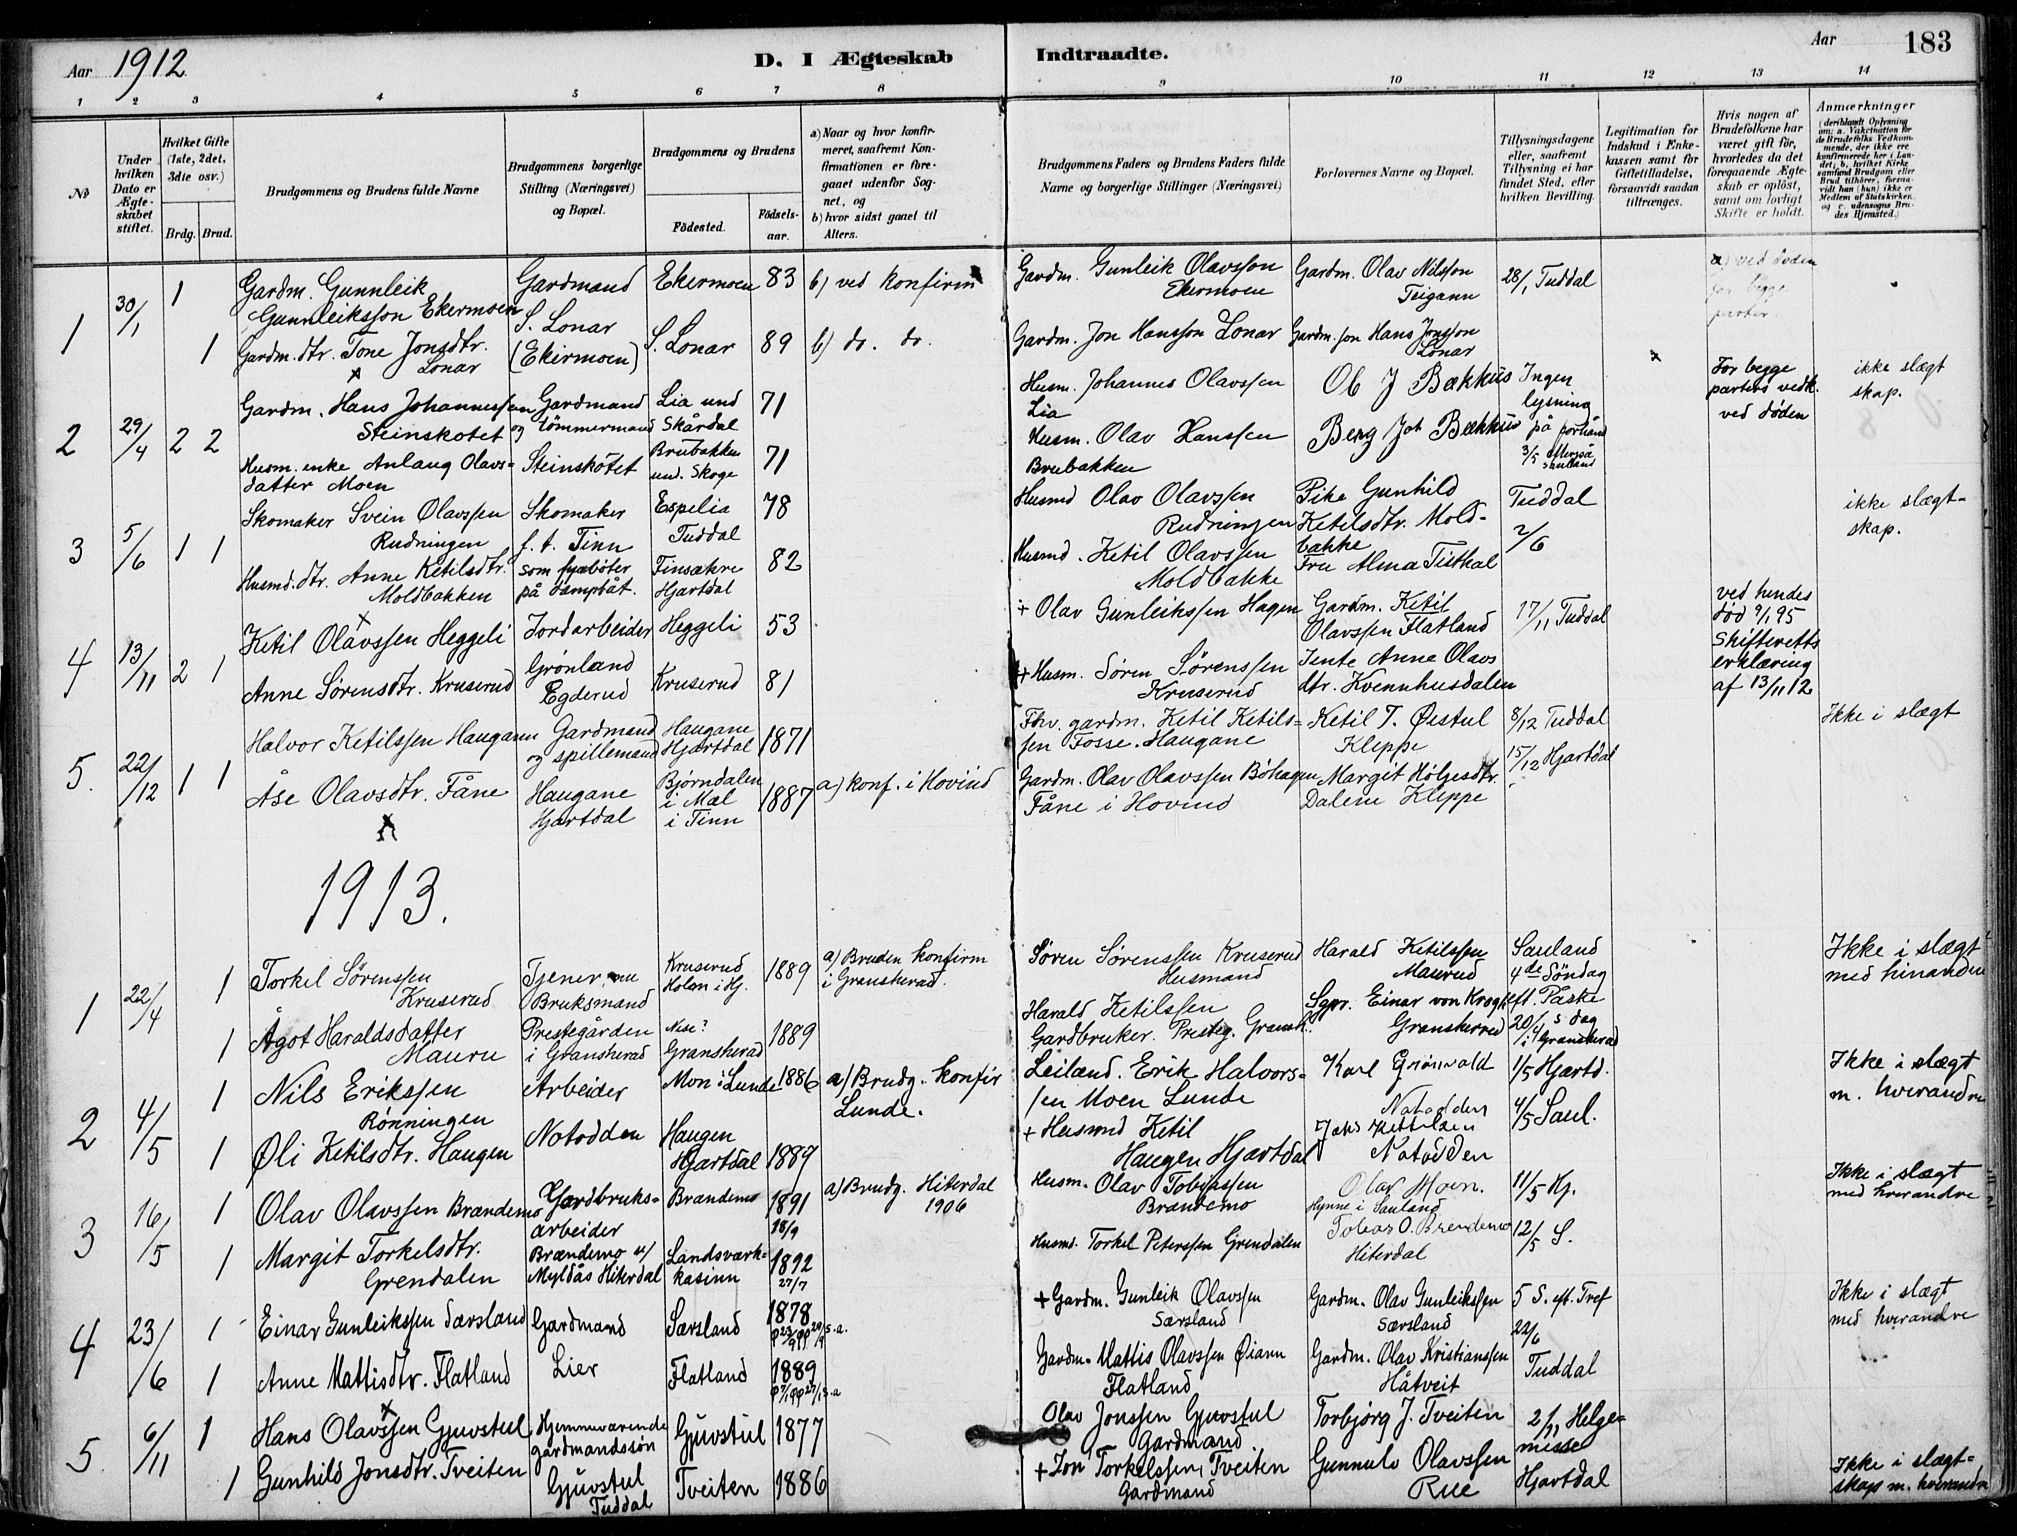 Aar 1912
D. I Ægteskab
Indtraadte.
Aar
183
1 2 3 4 5 6 7 8 9 10 11 12 13 14
No
Under
hvilken
Dato er
Ægte-
skabet
stiftet.
Hvilket Gifte
(1ste, 2det,
3die osv.)
Brdg. Brud.
Brudgommens og Brudens fulde Navne
Brudgommens borgerlige
Stilling (Næringsvei)
og Bopæl.
Brudgommens og Brudens
Fødested.
Fødsels-
aar.
a) Naar og hvor konfir-
meret, saafremt Kon-
firmationen er fore-
gaaet udenfor Sog-
net, og
b) hvor sidst gaaet til
Alters.
Brudgommens Faders og Brudens Faders fulde
Navne og borgerlige Stillinger (Næringsvei)
Forlovernes Navne og Bopæl.
Tillysningsdagene
eller, saafremt
Tillysning ei har
fundet Sted, efter
hvilken Bevilling.
Legitimation for
Indskud i Enke-
kassen samt for
Giftetilladelse,
forsaavidt saadan
tiltrænges.
Hvis nogen af
Brudefolkene har
været gift før,
hvorledes da det
foregaaende Ægte-
skab er opløst,
samt om lovligt
Skifte er holdt.
Anmærkninger
(deriblandt Oplysning
om: a. Vakcination for
de Brudefolks Vedkom-
mende, der ikke ere
konfirmerede her i Lan-
det; b. hvilket Kirke-
samfund Brudgom eller
Brud tilhører, forsaa-
vidt han (hun) ikke er
Medlem af Statskirken,
og c. udensogns Bru-
des Hjemsted.)
1
30/1
1
Gardm. Gunnleik
Gunnleiksson Ekermoen
Gardmand
S. Lonar
Ekermoen 83
b) ved konfirm
Gardm. Gunleik Olavsson
Ekermoen
Gardm. Olav Nilsson
Teigann
28/1 Tuddal
a) ved døden
for begge
parter.
1
Gardm. dtr. Tone Jonsdtr.
Lonar
(Ekermoen)
S. Lonar 89
b) do. do.
Gardm. Jon Hansson Lonar
Gardm. søn Hans Jonsson
Lonar
2
29/4
2 2
Gardm. Hans Johannessen
Steinskotet
Gardmand
og tömmermand
Lia und
Skårdal
71
Husm. Johannes Olavssen
Lia
Ol. J Bækkus
Ingen
lysning
på forhånd
For begge
parters vedk.
ved døden
ikke slægt
skap.
Husm. enke Anlaug Olavs-
datter Moen
Steinskotet
Brubakken
und. Skoge
71
Husm. Olav Hanssen
Brubakken
Berg Joh Bækkus
3/5
3
5/6
1 1
Skomaker Svein Olavssen
Rudningen
Skomaker
f. t. Tinn
Espelia
Tuddal
78
Husmd Olav Olavssen
Rudningen
Pike Gunhild
Ketilsdtr. Mold-
bakke
Tuddal
2/6
ikke slægt-
skap.
Husmd. dtr. Anne Ketilsdtr.
Moldbakken
som fyrbøter
på dampbåt.
Finsækre
Hjartdal
82
Husmd. Ketil Olavssen
Moldbakke
Fru Alma Tisthal
4
13/11
2 1
Ketil Olavssen Heggeli
Jordarbeider
Heggeli 53
+ Olav Gunleikssen Hagen
Gardm. Ketil
Olavssen Flatland
17/11 Tuddal
ved hendes
død 9/1 95
Skifteretts
erklæring
af 13/11 12
Anne Sørensdtr. Kruserud
Grønland
Egderud
Kruserud 81
+ Husm. Søren Sørenssen
Kruserud
Jente Anne Olavs
dtr. Kvennhusdalen
5.
22/12
1 1
Halvor Ketilssen Haugann
Gardmand
og spillemand
Haugane
Hjartdal
1871
Fhv. gardm. Ketil Ketils-
sen Fosse. Haugane
Ketil T. Øistul
Kleppe
8/12 Tuddal
Ikke i slægt
Åse Olavsdtr. Fåne
Haugane
Hjartdal
Bjørndalen
i Mæl
i Tinn
1887
a) konf. i Hovind
Gardm. Olav Olavssen Böhagen
Fåne i Hovind
Margit Hølgesdtr.
Dalene Kleppe
15/12 Hjartdal
1913.
1
22/4
1
Torkel Sørenssen
Kruserud
Tjener, nu
Bruksmand
Kruserud
Holm i Hj.
1889
a) Bruden konfirm
i Gransherad.
Søren Sørenssen Kruserud
Husmand
Harald Ketilssen
Maurud
Sauland
4de Söndag
eft. Påske
Ikke i slægt
med hinanden
1
Ågot Haraldsdatter
Mauru
Prestegården
i Gransherad
Nese?
Gransherad
1889
Harald Ketilssen
Gardbruker. Presteg. Gransh.
Sgpr. Einar von Krogh
Gransherad
20/4 s dag
i Gransherad
2
4/5
1
Nils Erikssen
Rønningen
Arbeider
Mon i Lunde 1886
a) Brudg. konfir
Lunde.
Leilænd. Erik Halvors-
sen Moen Lunde
Karl Grönvald
Notodden
1/5 Hjartd.
Ikke i slægt
m. hverandre
1
Øli Ketilsdtr. Haugen
Notodden
Haugen
Hjartdal 1889
+ Husmd Ketil
Haugen Hjartdal
Notodden
4/5 Saul.
3
16/5
1
Olav Olavssen Brændemo
Gardbruks-
arbeider
Brændemo
1891
18/9
a) Brudg. Hiterdal
1906
Husm. Olav Tobiassen
Brændemo
Olav Moen.
Hynne i Sauland
11/5 Hj.
Ikke i slægt
med hverandre
1
Margit Torkelsdtr.
Grendalen
Brændemo u/
Myldås Hiterdal
Landsværk-
kasinn
1892
27/7
Husmd. Torkel Peterssen Grendalen
Tobias O. Brendemo
Hiterdal
12/5 S.
4
23/6
1
Einar Gunleikssen Særsland
Gardmand
Særsland
1878
+ Gardm. Gunleik Olavssen
Særsland
Gardm. Olav Gunleikssen
Særsland
5 S. eft. Tref
22/6
Ikke i slægt
med hverandre
1
Anne Mattisdtr. Flatland
Lier
Flatland
1889
Gardm. Mattis Olavssen Øiann
Flatland
Gardm. Olav Kristianssen
Håtveit
Tuddal
5
6/11
1
Hans Olavssen Gjuvstul
Hjemmeværende
gardmandssön
Gjuvstul 1877
Olav Jonssen Gjuvstul
Gardmand
Torbjørg J. Tveiten
2/11 Helge-
misse
1
Gunhild Jonsdtr. Tveiten
Gjuvstul
Tuddal
Tveiten 1886
+ Jon Torkelssen Tveiten
Gardmand
Gunnulv Olavssen
Rue
Hjartdal
Ikke i slægt-
skap m. hverandre